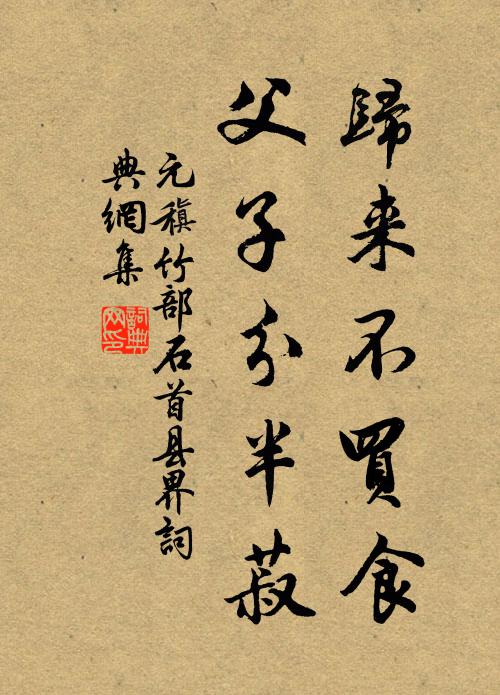 歸来不買食
父子分半菽
元稹竹部石首县界詞
典網集
詞典网印